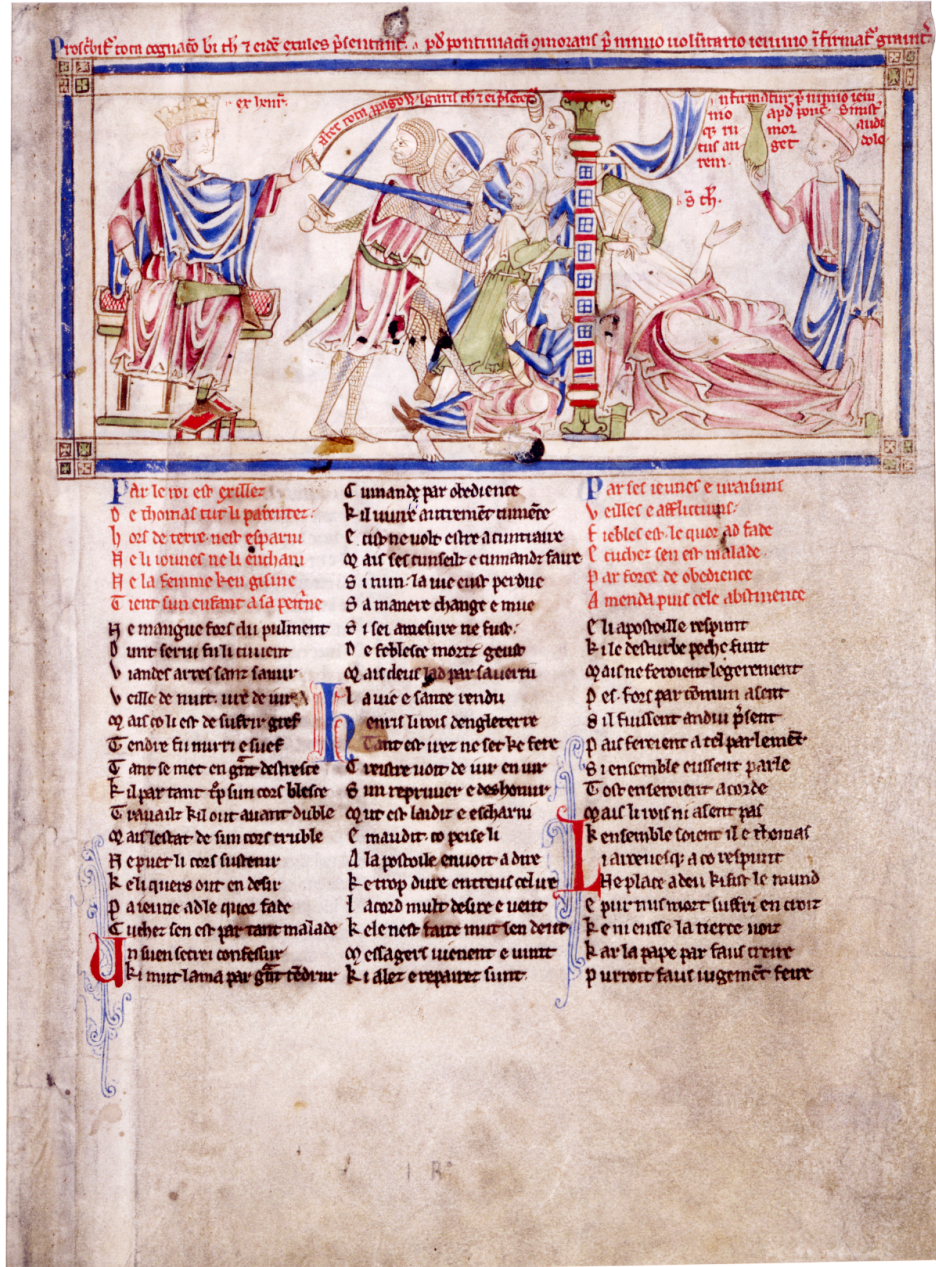 Proscͥbit͛ tota cognac̄o bͥ th̄ ⁊ eidē exules p̄sentant͛. ap̄d pontiniacū 9morans p̄ nimio uolūtario ieiunio īfirmat͛ grauit͛
rex henr̄.
infirmatur p̄ nimio ieiu
nio apd pont̄.
mor
get
rem.
b̄s th̄.
Par le roi est grillez
De thomas tut li parentez.
Hors de terre nest esparni
Ne li iounes ne li enchani
Ne la femme ken gisine
Tient sun enfant a sa peitͥne
Ne mangue fors du pulment
Dunt serui fu li cuuent
Viandes aires sanz sauur
Veille de nuit. iure de iur
Mais co li est de suffrir gref
Tendre fu nurri e suef
Tant se met en gͣnt destresce
Kil par tant tp̄ sun cors blesce
Trauailz kil out auant duble
Mais lestat de sun cors truble
Ne puet li cors sustenir
Ke li quers out en desir
Pa ieune ad le quor fade
Cucher sen est par tant malade
Un suen secrei confessur
Ki mut lama par gͣnt tēdrur
Cumande par obedience
Kil uiure autremēt cumēce
E cist ne uolt estre a cuntraire
Mais ses cunseilz e cumandz faire
Si nun. la uie eust perdue
Sa manere change e mue
Si sei amesure ne fust.
De feblesce mortz geust
Mais deus lad par sa uertu
La uie e sante rendu
Henris li rois dengleterre
Tant est irez ne set ke fere
Creistre uoit de iur en iur
Sun repruuer e deshonur
Mut est laidiz e escharni
E maudit. co peise li
A la postoile enuoit a dire
Ke trop dure entreus cel ire
Lacord mult desire e ueut
Ke le nest faite mut sen deut
Messagers iuenent e uunt
Ki alez e repairez sunt.
Par ses ieunes e uraisuns
Veilles e afflictiuns.
Fiebles est. le quor ad fade
Cuchez sen est malade.
Par force de obedience
Amenda puis cele abstinence
E li apostoille respunt
Ki le desturbe peche funt
Mais ne feroient legerement
Pes. fors par cōmun asent
Sil fuissent andui p̄sent
Pais fereient a tel parlemēt
Si ensemble eussent parle
Tost enseroient acorde
Mais li rois ni asent pas
Kensemble soient il e thomas
Li arceuesqͣ a co respunt
Ne place a deu ki fist le mund
E pur nus mort suffri en croiz
Ke ni eusse la tierce uoiz
Kar la pape par faus creire
Purroit faus iugemēt feire